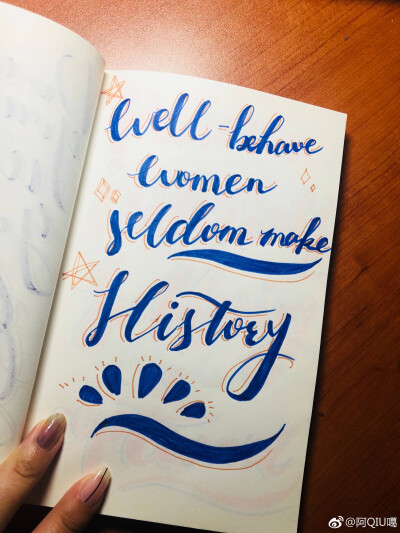 Well-behave
women
seldom make
History
@阿QIU噶